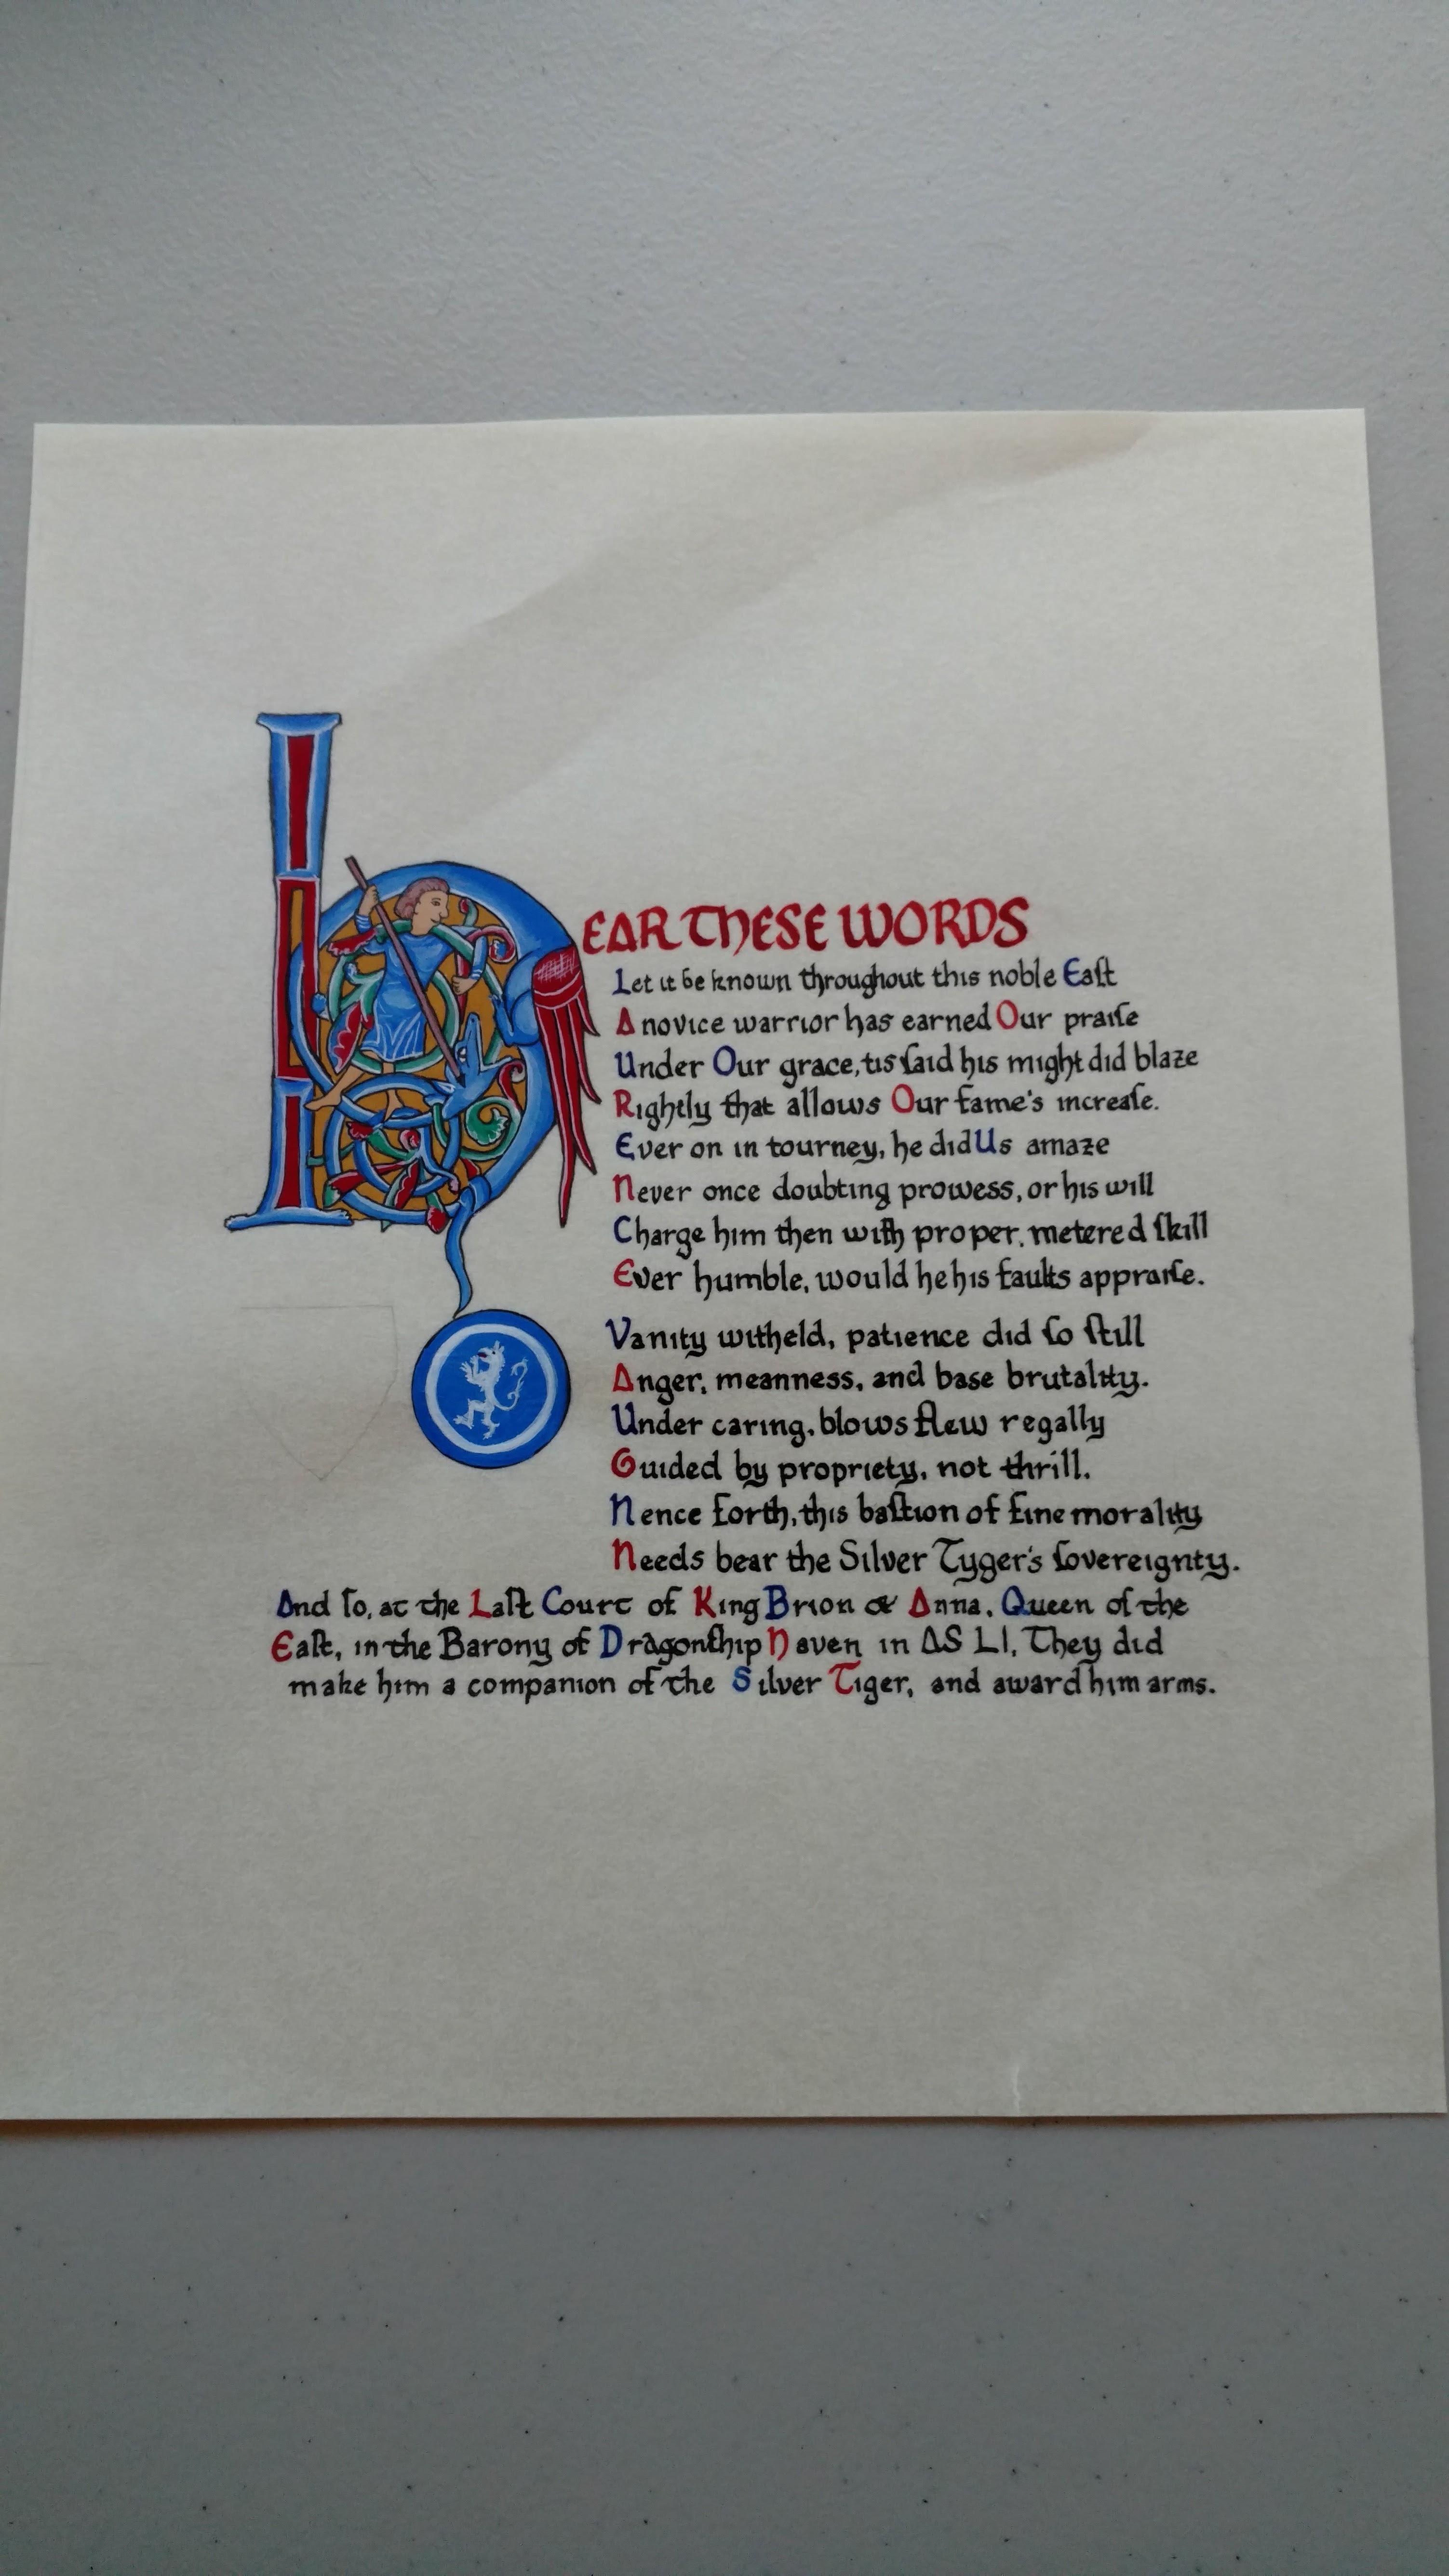 hEAR THESE WORDS
Let it be known throughout this noble Eaſt
A novice warrior has earned Our praiſe
Under Our grace, tis ſaid his might did blaze
Rightly that allows Our fame's increaſe.
Ever on in tourney, he did Us amaze
Never once doubting prowess, or his will
Charge him then with proper, metered ſkill
Ever humble, would he his faults appraiſe.
Vanity witheld, patience did ſo ſtill
Anger, meanness, and base brutality.
Under caring, blows flew regally
Guided by propriety, not thrill.
Hence forth, this baſtion of fine morality
Needs bear the Silver Tyger's ſovereignty.
And ſo, at the Laſt Court of King Brion & Anna, Queen of the
Eaſt, in the Barony of Dragonſhip Haven in AS LI, They did
make him a companion of the Silver Tiger, and award him arms.